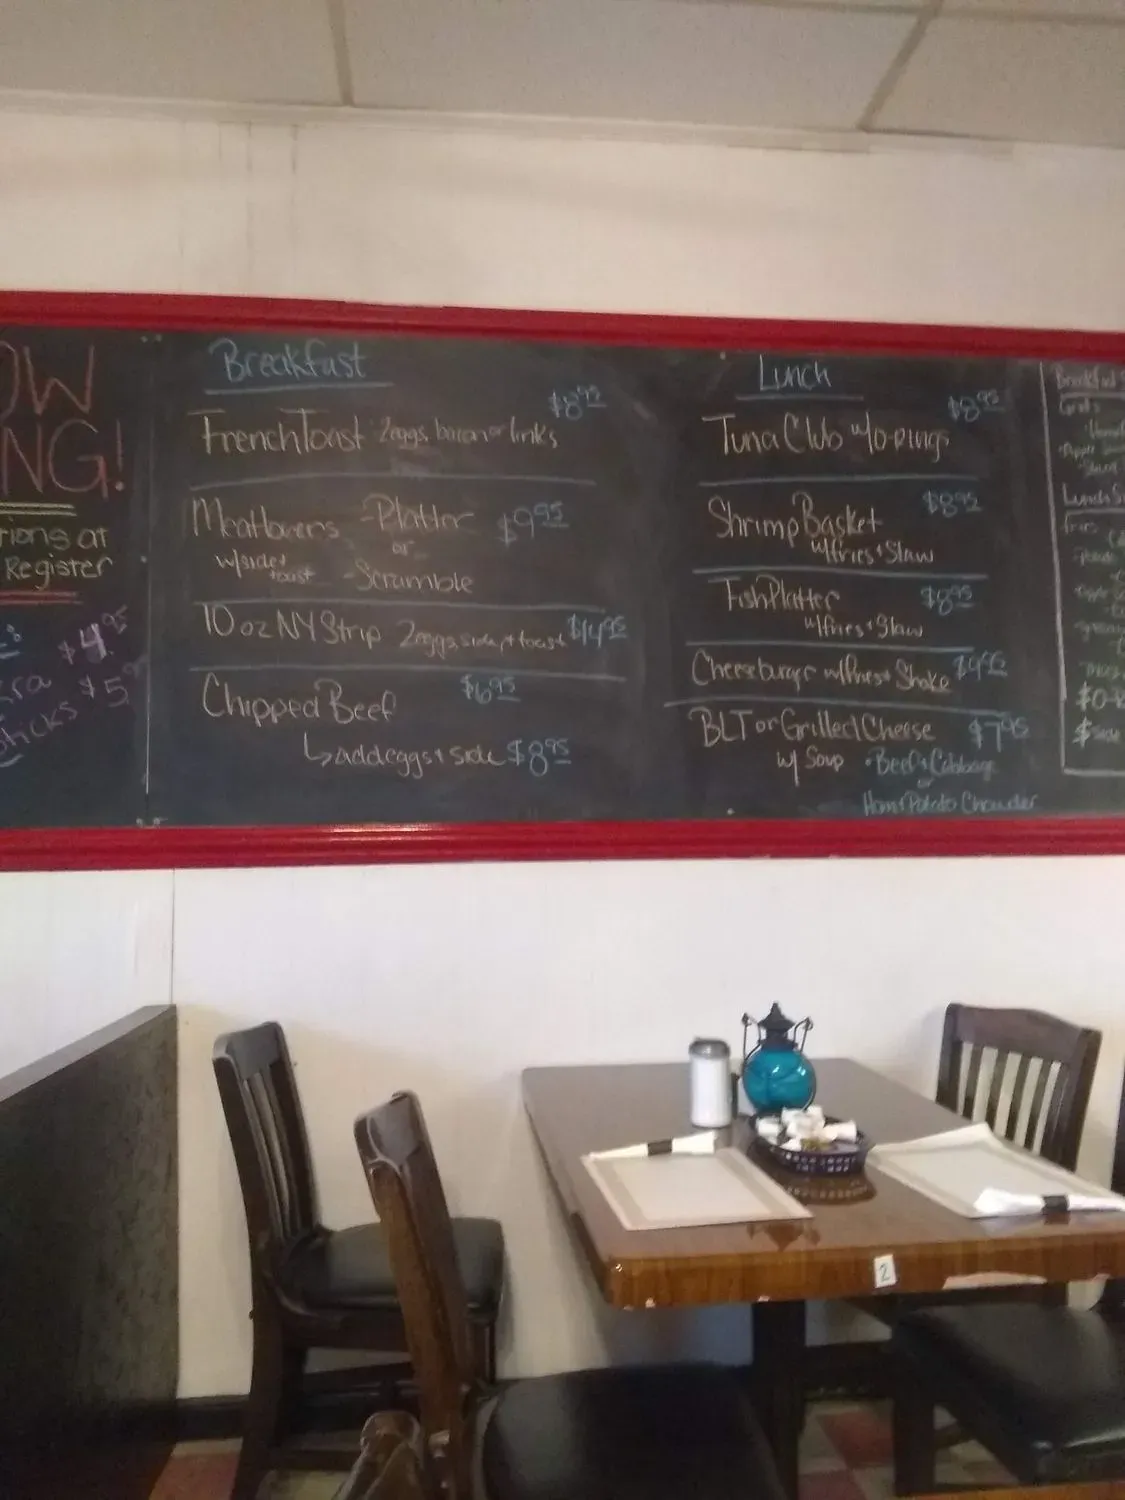 OW
NG!
tions at
Register
$4.95
ra
sticks $5.
Breakfast
$8.95
French Toast 2 eggs, bacon or links
Meatlovers - Platter $9.95
or
w/side + toast - Scramble
10 oz NY Strip 2 eggs, side, + toast $14.95
Chipped Beef $6.95
↳ add eggs + side $8.95
Lunch
$8.95
Tuna Club w/ O-Rings
Shrimp Basket $8.95
w/fries + Slaw
Fish Platter $8.95
w/fries + Slaw
Cheeseburger w/Fries + Shake $9.95
BLT or Grilled Cheese $7.95
w/ Soup • Beef + Cabbage
or
Ham + Potato Chowder
Breakfast
Grits
Lunch
Fries
2